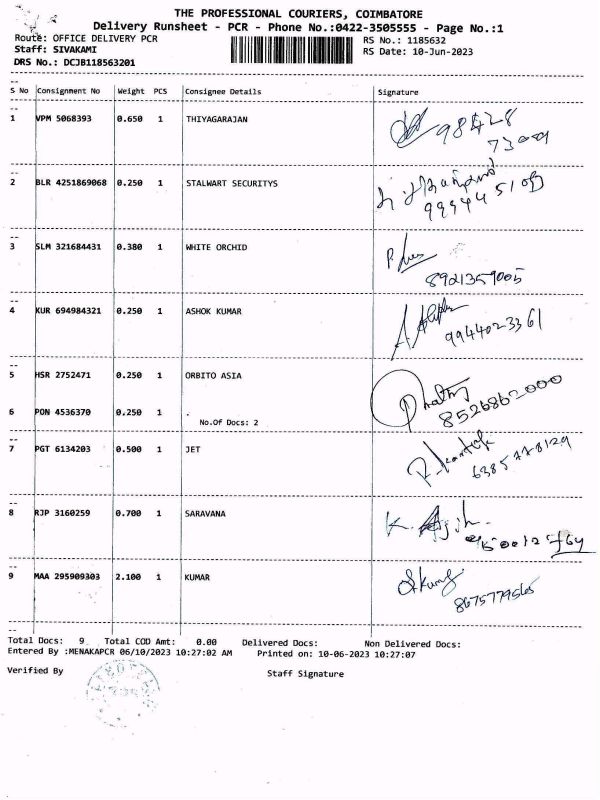 THE PROFESSIONAL COURIERS, COIMBATORE
Delivery Runsheet - PCR - Phone No.:0422-3505555 - Page No.:1
Route: OFFICE DELIVERY PCR
RS No.: 1185632
Staff: SIVAKAMI
RS Date: 10-Jun-2023
DRS No.: DCJB118563201
S No Consignment No Weight PCS Consignee Details Signature
1 VPM 5068393 0.650 1 THIYAGARAJAN
98428
73009
2 BLR 4251869068 0.250 1 STALWART SECURITYS
3 SLM 321684431 0.380 1 WHITE ORCHID
8921359005
4 KUR 694984321 0.250 1 ASHOK KUMAR
9944023361
5 HSR 2752471 0.250 1 ORBITO ASIA
8526862000
6 PON 4536370 0.250 1 .
No.Of Docs: 2
7 PGT 6134203 0.500 1 JET
6385778129
8 RJP 3160259 0.700 1 SARAVANA
9 MAA 295909303 2.100 1 KUMAR
8675779565
Total Docs: 9 Total COD Amt: 0.00 Delivered Docs: Non Delivered Docs:
Entered By :MENAKAPCR 06/10/2023 10:27:02 AM Printed on: 10-06-2023 10:27:07
Verified By
Staff Signature